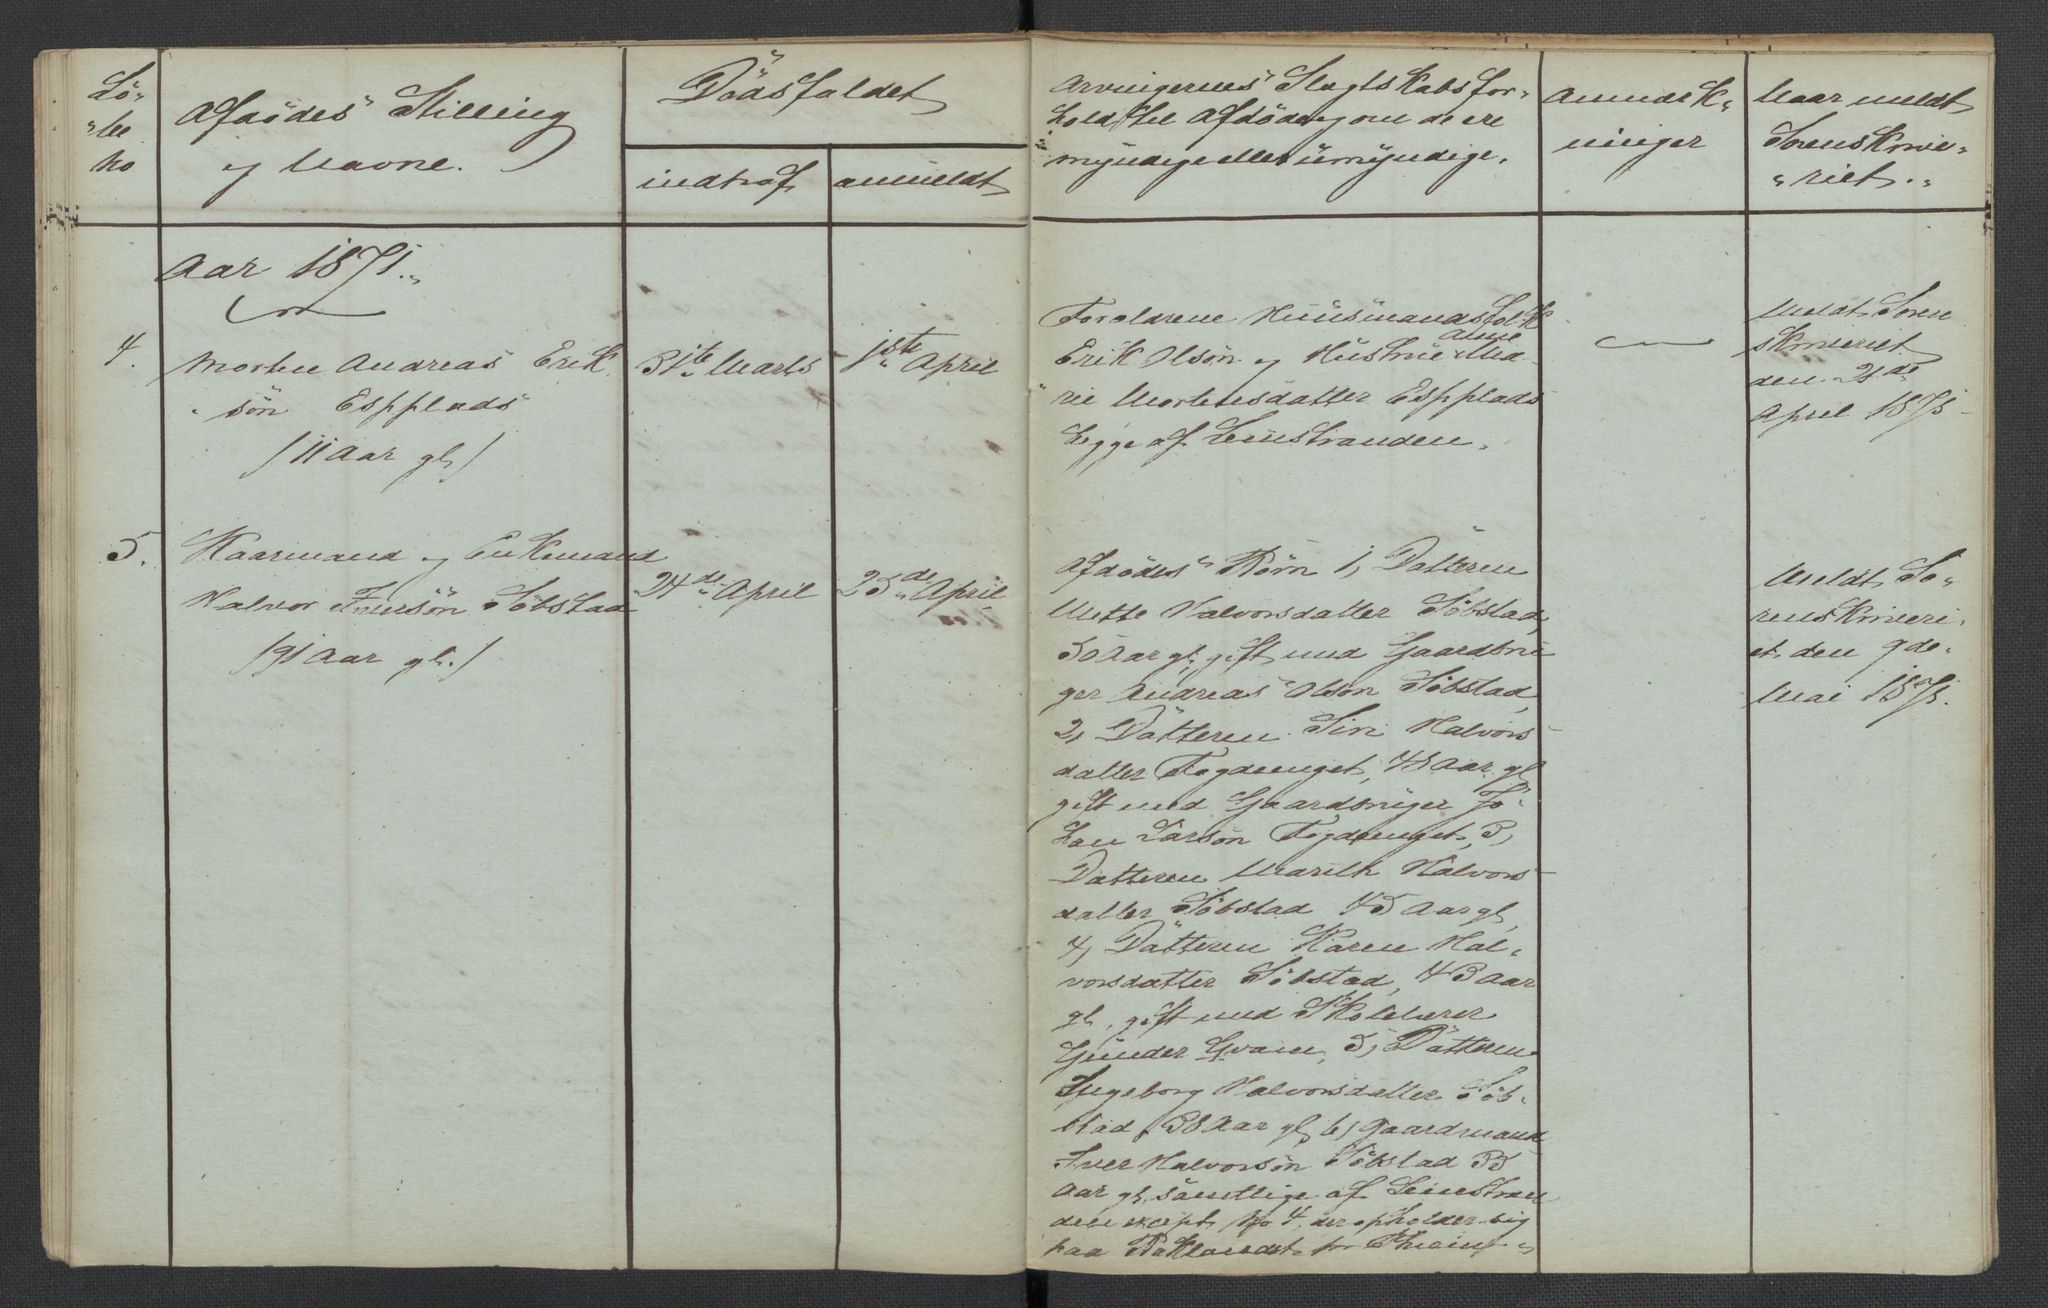 Lö-
"be
No
Afdödes Stilling
og Navne.
Dödsfaldet
indtraf
anmeldt
Arvingernes Slegtskabsfor-
hold til Afdöde og om de ere
myndige eller umyndige.
Anmærk-
ninger
Naar meldt
Sorenskrive-
"riet."
Aar 1871.
4.
Morten Andreas Erik
sön Espplads
/11 Aar gl/
31te Marts
1ste April
Forældrene Huusmandsfolk
Erik Olsön og Hustrue Anne Ma-
rie Mortensdatter Espplads
begge af Leinstranden.
Meldt Soren
skriveriet
den 21de
April 1871
5.
Kaarmand og Enkemand
Halvor Iversön Söbstad
/91 Aar gl./
24de April
25de April
Afdödes Börn 1, Datteren
Mette Halvorsdatter Söbstad,
50 Aar gl, gift med Gaardbru
ger Andreas Olsön Söbstad,
2, Datteren Siri Halvors-
datter Fogdenget, 48 Aar gl
gift med Gaardbruger Jo-
han Larsön Fogdenget, 3,
Datteren Marith Halvors-
datter Söbstad 45 Aar gl,
4, Datteren Karen Hal-
vorsdatter Söbstad, 43 Aar
gl, gift med Skolelærer
Gunder Gvam, 5, Datteren
Ingeborg Halvorsdatter Söb-
stad, 38 Aar gl, 6, Gaardmand
Iver Halvorsön Söbstad 35
Aar gl, samtlige af Leinstran
den except No 4, der opholder sig
paa Baklandet
Meldt So-
renskriveri-
et den 9de
Mai 1871.